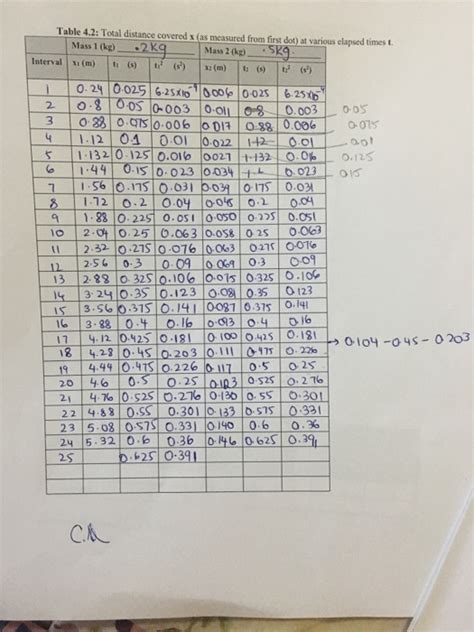 Table 4.2: Total distance covered x (as measured from first dot) at various elapsed times t.
Mass 1 (kg) .2kg Mass 2 (kg) .5kg
Interval x₁ (m) t₁ (s) t₁² (s²) x₂ (m) t₂ (s) t₂² (s²)
1 0.24 0.025 6.25x10⁻⁴ 0.006 0.025 6.25x10⁻⁴
2 0.8 0.05 0.003 0.011 0.8 0.003 0.05
3 0.88 0.075 0.006 0.017 0.88 0.006 0.075
4 1.12 0.1 0.01 0.022 1.12 0.01 0.01
5 1.132 0.125 0.016 0.027 1.132 0.016 0.125
6 1.44 0.15 0.023 0.034 0.023 0.15
7 1.56 0.175 0.031 0.039 0.175 0.031
8 1.72 0.2 0.04 0.045 0.2 0.04
9 1.88 0.225 0.051 0.050 0.225 0.051
10 2.04 0.25 0.063 0.058 0.25 0.063
11 2.32 0.275 0.076 0.063 0.275 0.076
12 2.56 0.3 0.09 0.069 0.3 0.09
13 2.88 0.325 0.106 0.075 0.325 0.106
14 3.24 0.35 0.123 0.081 0.35 0.123
15 3.56 0.375 0.141 0.087 0.375 0.141
16 3.88 0.4 0.16 0.093 0.4 0.16
17 4.12 0.425 0.181 0.100 0.425 0.181 → 0.104 - 0.45 - 0.203
18 4.28 0.45 0.203 0.111 0.475 0.226
19 4.44 0.475 0.226 0.117 0.5 0.25
20 4.6 0.5 0.25 0.123 0.525 0.276
21 4.76 0.525 0.276 0.130 0.55 0.301
22 4.88 0.55 0.301 0.133 0.575 0.331
23 5.08 0.575 0.331 0.140 0.6 0.36
24 5.32 0.6 0.36 0.146 0.625 0.391
25 0.625 0.391